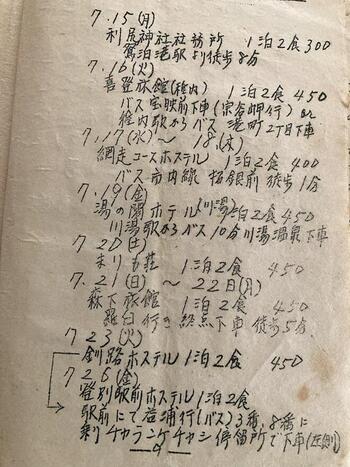 7.15(月)
利尻神社社務所 1泊2食 300
鴛泊港駅より徒歩8分
7.16(火)
喜登旅館(稚内) 1泊2食 450
バス宝映前下車(宗谷岬行) or
稚内駅からバス 港町2丁目下車
7.17(水)～18.(木)
網走ユースホステル 1泊2食 400
バス市内線 拓銀前 徒歩1分
7.19(金)
湯の閣ホテル(川湯)1泊2食 450
川湯駅からバス10分川湯温泉下車
7.20(土)
まりも荘 1泊2食 450
7.21(日)～22日(月)
森下旅館 1泊2食 450
羅臼行き終点下車 徒歩5分
7.23(火)
釧路ホステル1泊2食 450
7.26(金)
登別駅前ホステル1泊2食
駅前にて 行(バス)3番、8番に
乗りチャランケチャシ停留所で下車(左側)